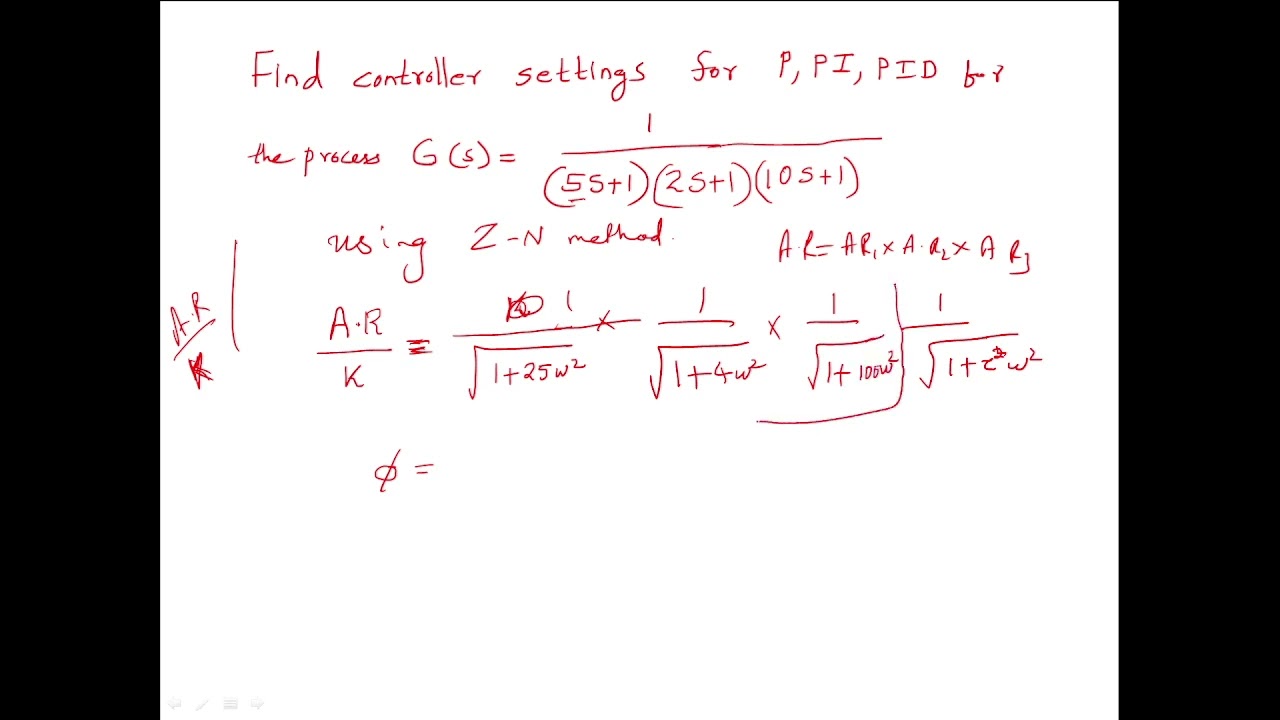 Find controller settings for P, PI, PID for
the process G(s) = 1 / (5s+1)(2s+1)(10s+1)
using Z-N method.
A.R = AR₁ × A.R₂ × A R₃
A.R / K
A.R / K = 1 / √(1+25w²) × 1 / √(1+4w²) × 1 / √(1+100w²) 1 / √(1+τ²w²)
φ =